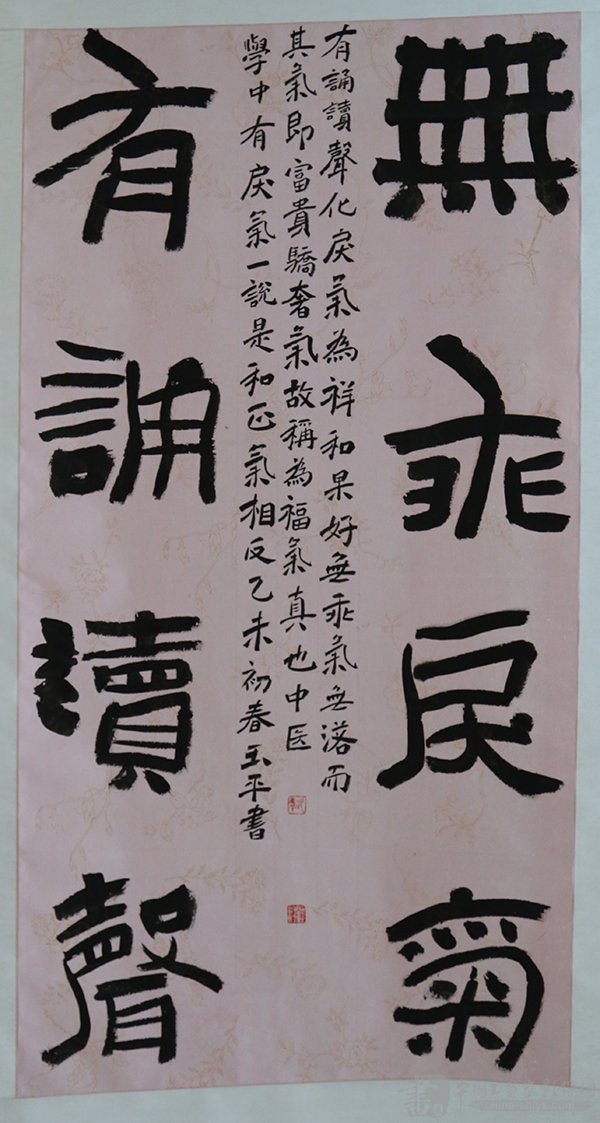 無乖戾氣
有誦讀聲化戾氣為祥和果好無乖氣無落而
其氣即富貴驕奢氣故稱為福氣真也中医
學中有戾氣一說是和正氣相反乙未初春玉平書
有誦讀聲